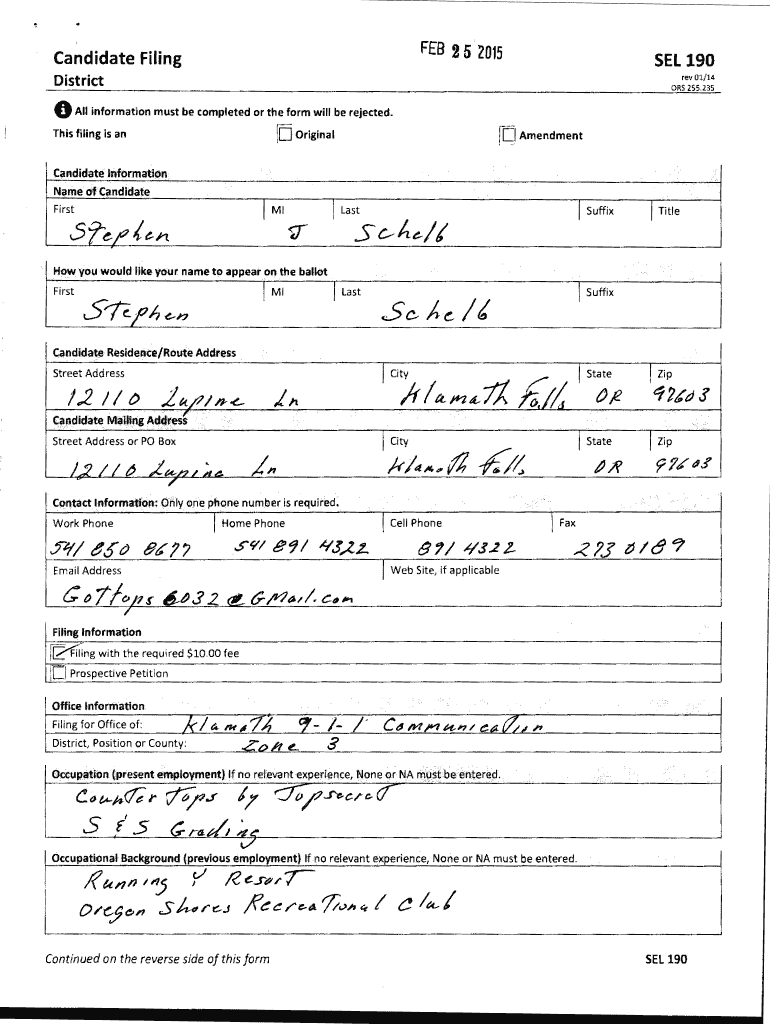 Candidate Filing
District
FEB 25 2015
SEL 190
rev 01/14
ORS 255.235
All information must be completed or the form will be rejected.
This filing is an Original Amendment
Candidate Information
Name of Candidate
First MI Last Suffix Title
Stephen J Schelb
How you would like your name to appear on the ballot
First MI Last Suffix
Stephen Schelb
Candidate Residence/Route Address
Street Address City State Zip
12110 Lupine Ln Klamath Falls OR 97603
Candidate Mailing Address
Street Address or PO Box City State Zip
12110 Lupine Ln Klamath Falls OR 97603
Contact Information: Only one phone number is required.
Work Phone Home Phone Cell Phone Fax
541 850 8677 541 891 4322 891 4322 273 0189
Email Address Web Site, if applicable
Gottops6032@GMail.com
Filing Information
Filing with the required $10.00 fee
Prospective Petition
Office Information
Filing for Office of: Klamath 9-1-1 Communication
District, Position or County: Zone 3
Occupation (present employment) If no relevant experience, None or NA must be entered.
Counter Tops by Topsecret
S & S Grading
Occupational Background (previous employment) If no relevant experience, None or NA must be entered.
Running Y Resort
Oregon Shores Recreational Club
Continued on the reverse side of this form
SEL 190